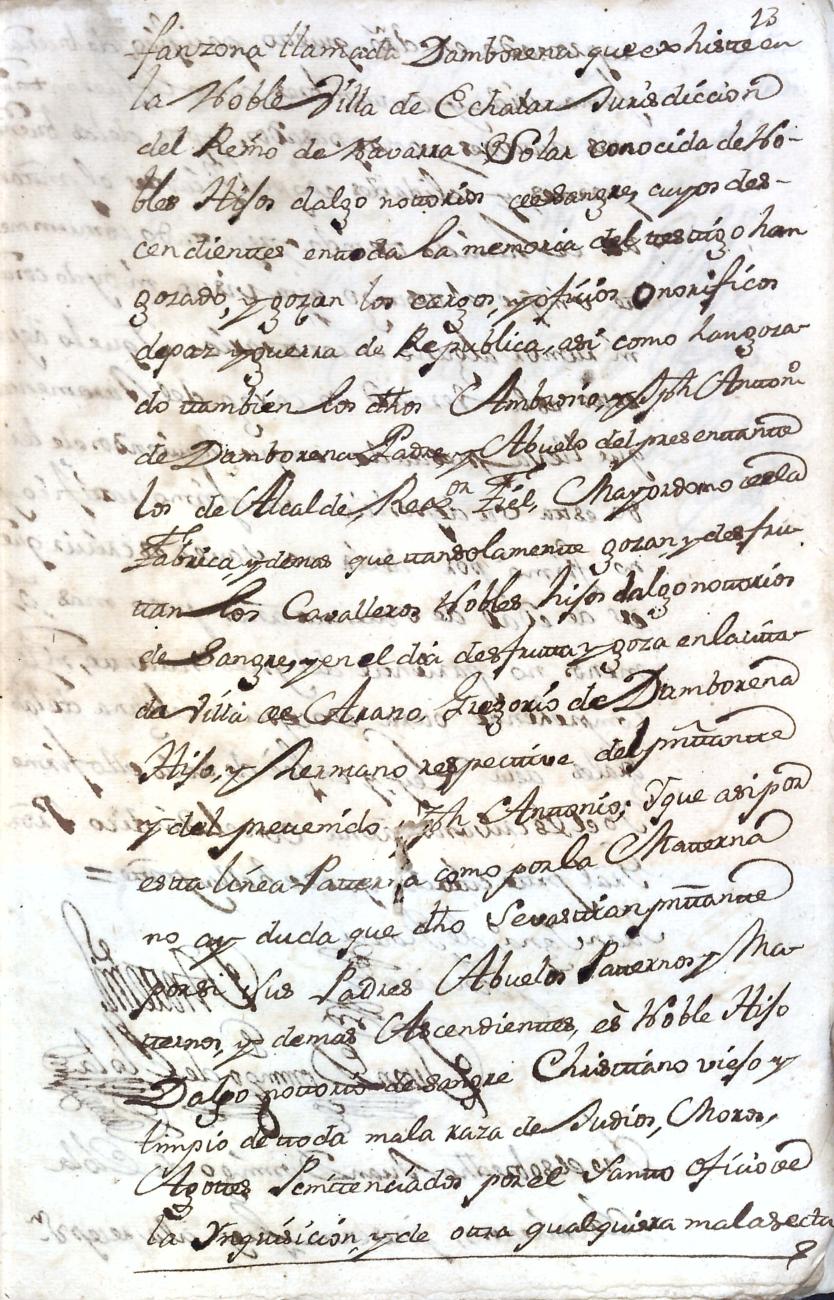 13
fanzona llamada Damborena que exhiste en
la Noble Villa de Echalar Jurisdiccion
del Reyno de Navarra Solar conocida de No-
bles Hijos dalgo nottorios de Sangre, cuyos des-
cendienttes en ttoda la memoria del testtigo han
gozado, y gozan los cargos, y oficios Onorificos
de paz y guerra de Republica, asi como han goza-
do ttambien los dhos Ambrosio, y Jph Anttonº
de Damborena Padre y Abuelo del presenttantte
los de Alcalde, Regor Fiel, Mayordomo de la
Fabrica, y demas que ttan solamentte gozan, y desfru-
ttan los Cavalleros Nobles hijos dalgo nottorios
de Sangre, y en el dia desfrutta y goza en la citta-
da Villa de Arano, Gregorio de Damborena
Hijo, y Hermano respective del pnttantte
y del prevenido Jph Anttonio; Y que asi por
estta linea Patterna como por la Matterna
no ay duda que dho Sevasttian pnttantte
por si, sus Padres Abuelos Patternos y Ma-
tternos, y demas Ascendienttes, es Noble Hijo
Dalgo nottorio de Sangre Christtiano viejo y
limpio de ttoda mala raza de Judios, Moros,
Agottes Penittenciados por el Santto Oficio de
la Ynquisicion, y de ottra qualquiera mala secta